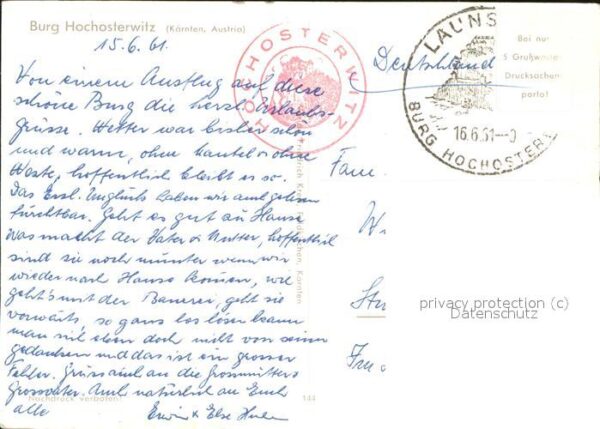 Burg Hochosterwitz (Kärnten, Austria)
15.6.61.
Von einem Ausflug auf diese
schöne Burg die herzl. Urlaubs-
grüsse. Wetter war bisher schön
und warm, ohne Mantel & ohne
Weste, hoffentlich bleibt es so.
Das Ersl. Unglück haben wir auch gelesen
furchtbar. Geht es gut zu Hause
was macht der Vater & Mutter, hoffentlich
sind sie noch munter wenn wir
wieder nach Hause kommen, wie
geht's mit der Bauerei, geht sie
vorwärts, so ganz los lösen kann
man sich eben doch nicht von seinen
Gedanken und das ist ein grosser
Fehler. Grüss auch an die Grossmutter &
Grossvater. Auch natürlich an Euch
alle
Erwin & Else
Nachdruck verboten!
144
HOCHOSTERWITZ
Deutschland
LAUNS
BURG HOCHOSTERW
16.6.61-
Bei nur
5 Grußworten
Drucksachen-
porto!
Fam.
W
Stu
Fra
privacy protection (c)
Datenschutz